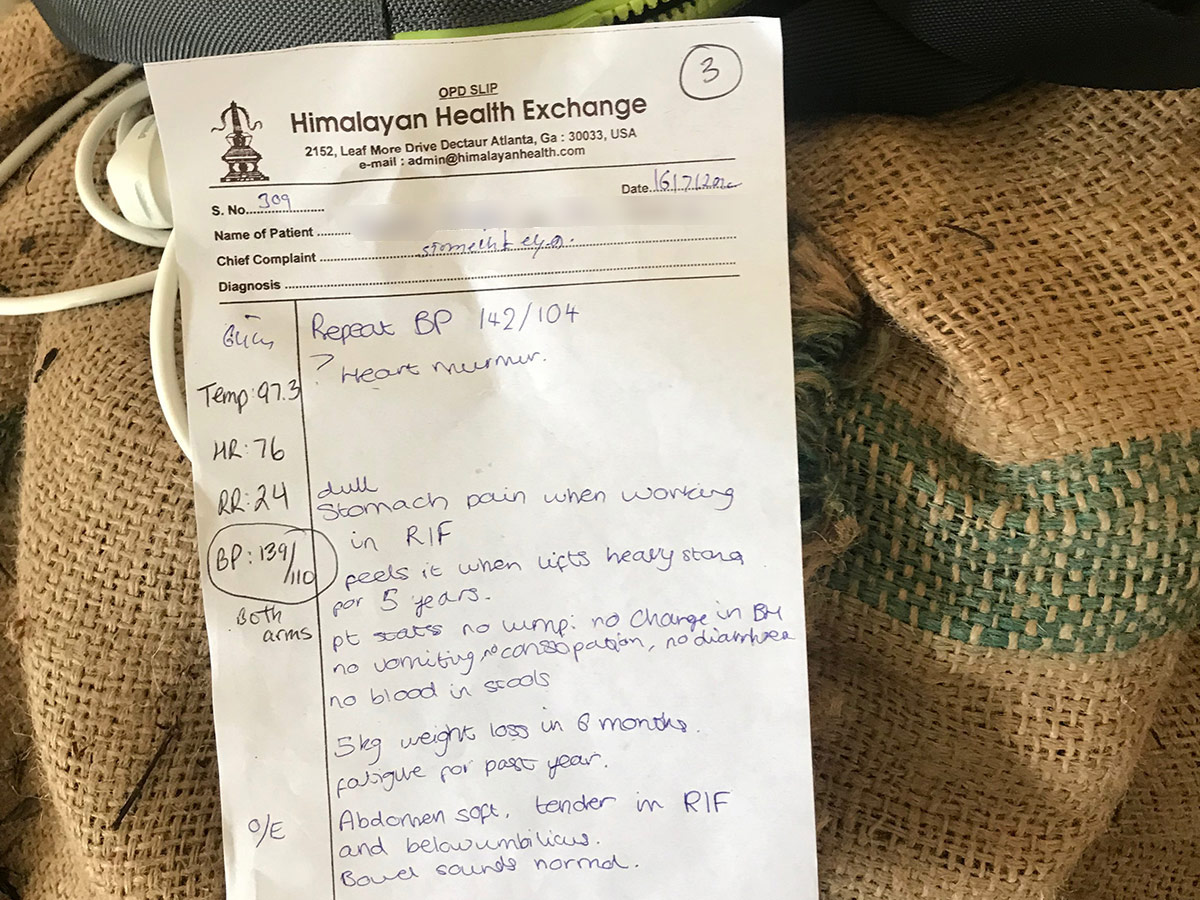 3
OPD SLIP
Himalayan Health Exchange
2152, Leaf More Drive Dectaur Atlanta, Ga : 30033, USA
e-mail : admin@himalayanhealth.com
S. No. 309
Date 16/7/20
Name of Patient
Chief Complaint
Diagnosis
Repeat BP 142/104
? Heart murmur.
Temp: 97.3
HR: 76
RR: 24
BP: 139/110
Both arms
dull
Stomach pain when working
in RIF
feels it when lifts heavy
for 5 years.
pt stats no lump. no change in BM
no vomiting, no constipation, no diarrhoea
no blood in stools
5kg weight loss in 6 months.
fatigue for past year.
O/E
Abdomen soft, tender in RIF
and below umbilicus.
Bowel sounds normal.